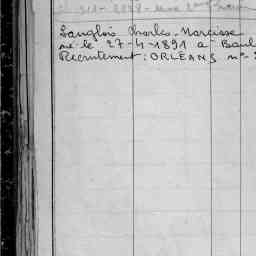 Langlois Charles-Narcisse
né le 27-4-1891 à Baul
Recrutement: ORLEANS n°-